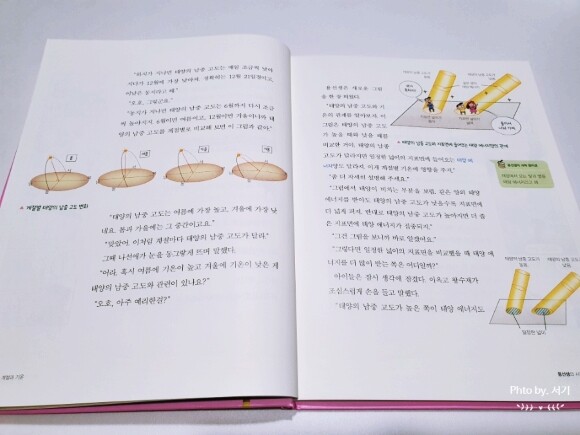 "하지가 지나면 태양의 남중 고도는 매일 조금씩 낮아
지다가 12월에 가장 낮아져. 정확히는 12월 21일쯤이고,
이날은 동지라고 해."
"오호, 그렇군요."
"동지가 지나면 태양의 남중 고도는 6월까지 다시 조금
씩 높아지지. 6월이면 여름이고, 12월이면 겨울이니까 태
양의 남중 고도를 계절별로 비교해 보면 이 그림과 같아."
봄
여름
가을
겨울
계절별 태양의 남중 고도 변화
"태양의 남중 고도는 여름에 가장 높고, 겨울에 가장 낮
네요. 봄과 가을에는 그 중간이고요."
"맞았어. 이처럼 계절마다 태양의 남중 고도가 달라."
그때 나선애가 눈을 동그랗게 뜨며 말했다.
"어라, 혹시 여름에 기온이 높고 겨울에 기온이 낮은 게
태양의 남중 고도와 관련이 있나요?"
"오호, 아주 예리한걸?"
계절과 기온
용선생은 새로운 그림
을 한 장 띄웠다.
"태양의 남중 고도와 기
온의 관계를 알아보자. 이
그림은 태양의 남중 고도
가 높을 때와 낮을 때를
비교한 거야. 태양의 남중
고도가 달라지면 일정한 넓이의 지표면에 들어오는 태양 에
너지양도 달라져. 이게 계절별 기온에 영향을 주지."
"좀 더 자세히 설명해 주세요."
"그림에서 태양이 비치는 부분을 보렴. 같은 양의 태양
에너지를 받아도 태양의 남중 고도가 낮을수록 지표면에
더 넓게 퍼져. 반대로 태양의 남중 고도가 높아지면 더 좁
은 지표면에 태양 에너지가 집중되지."
"그런 그림을 보니까 바로 알겠어요."
"그렇다면 일정한 넓이의 지표면을 비교했을 때 태양 에
너지를 더 많이 받는 쪽은 어디일까?"
아이들은 잠시 생각에 잠겼다. 이윽고 왕수재가
조심스럽게 손을 들고 말했다.
"태양의 남중 고도가 높은 쪽이 태양 에너지도
태양의 남중 고도와 지표면에 들어오는 태양 에너지양의 관계
일정한 넓이
용선생의
Phto by. 서기